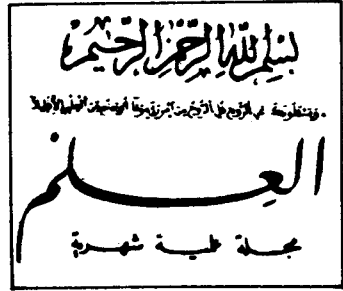 بسم الله الرحمن الرحيم
ويسئلونك عن الروح قل الروح من أمر ربي وما أوتيتم من العلم إلا قليلا
العلم
مجلة علمية شهرية